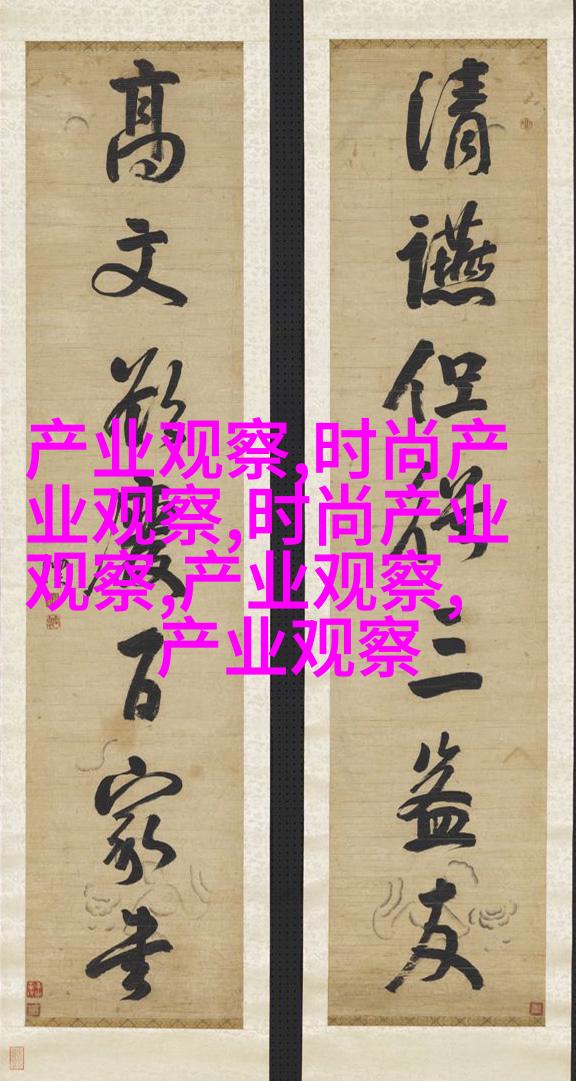 清讌但三益友
高文欲百家書
产业观察,时尚产
业观察,时尚产业
观察,产业观察,
产业观察